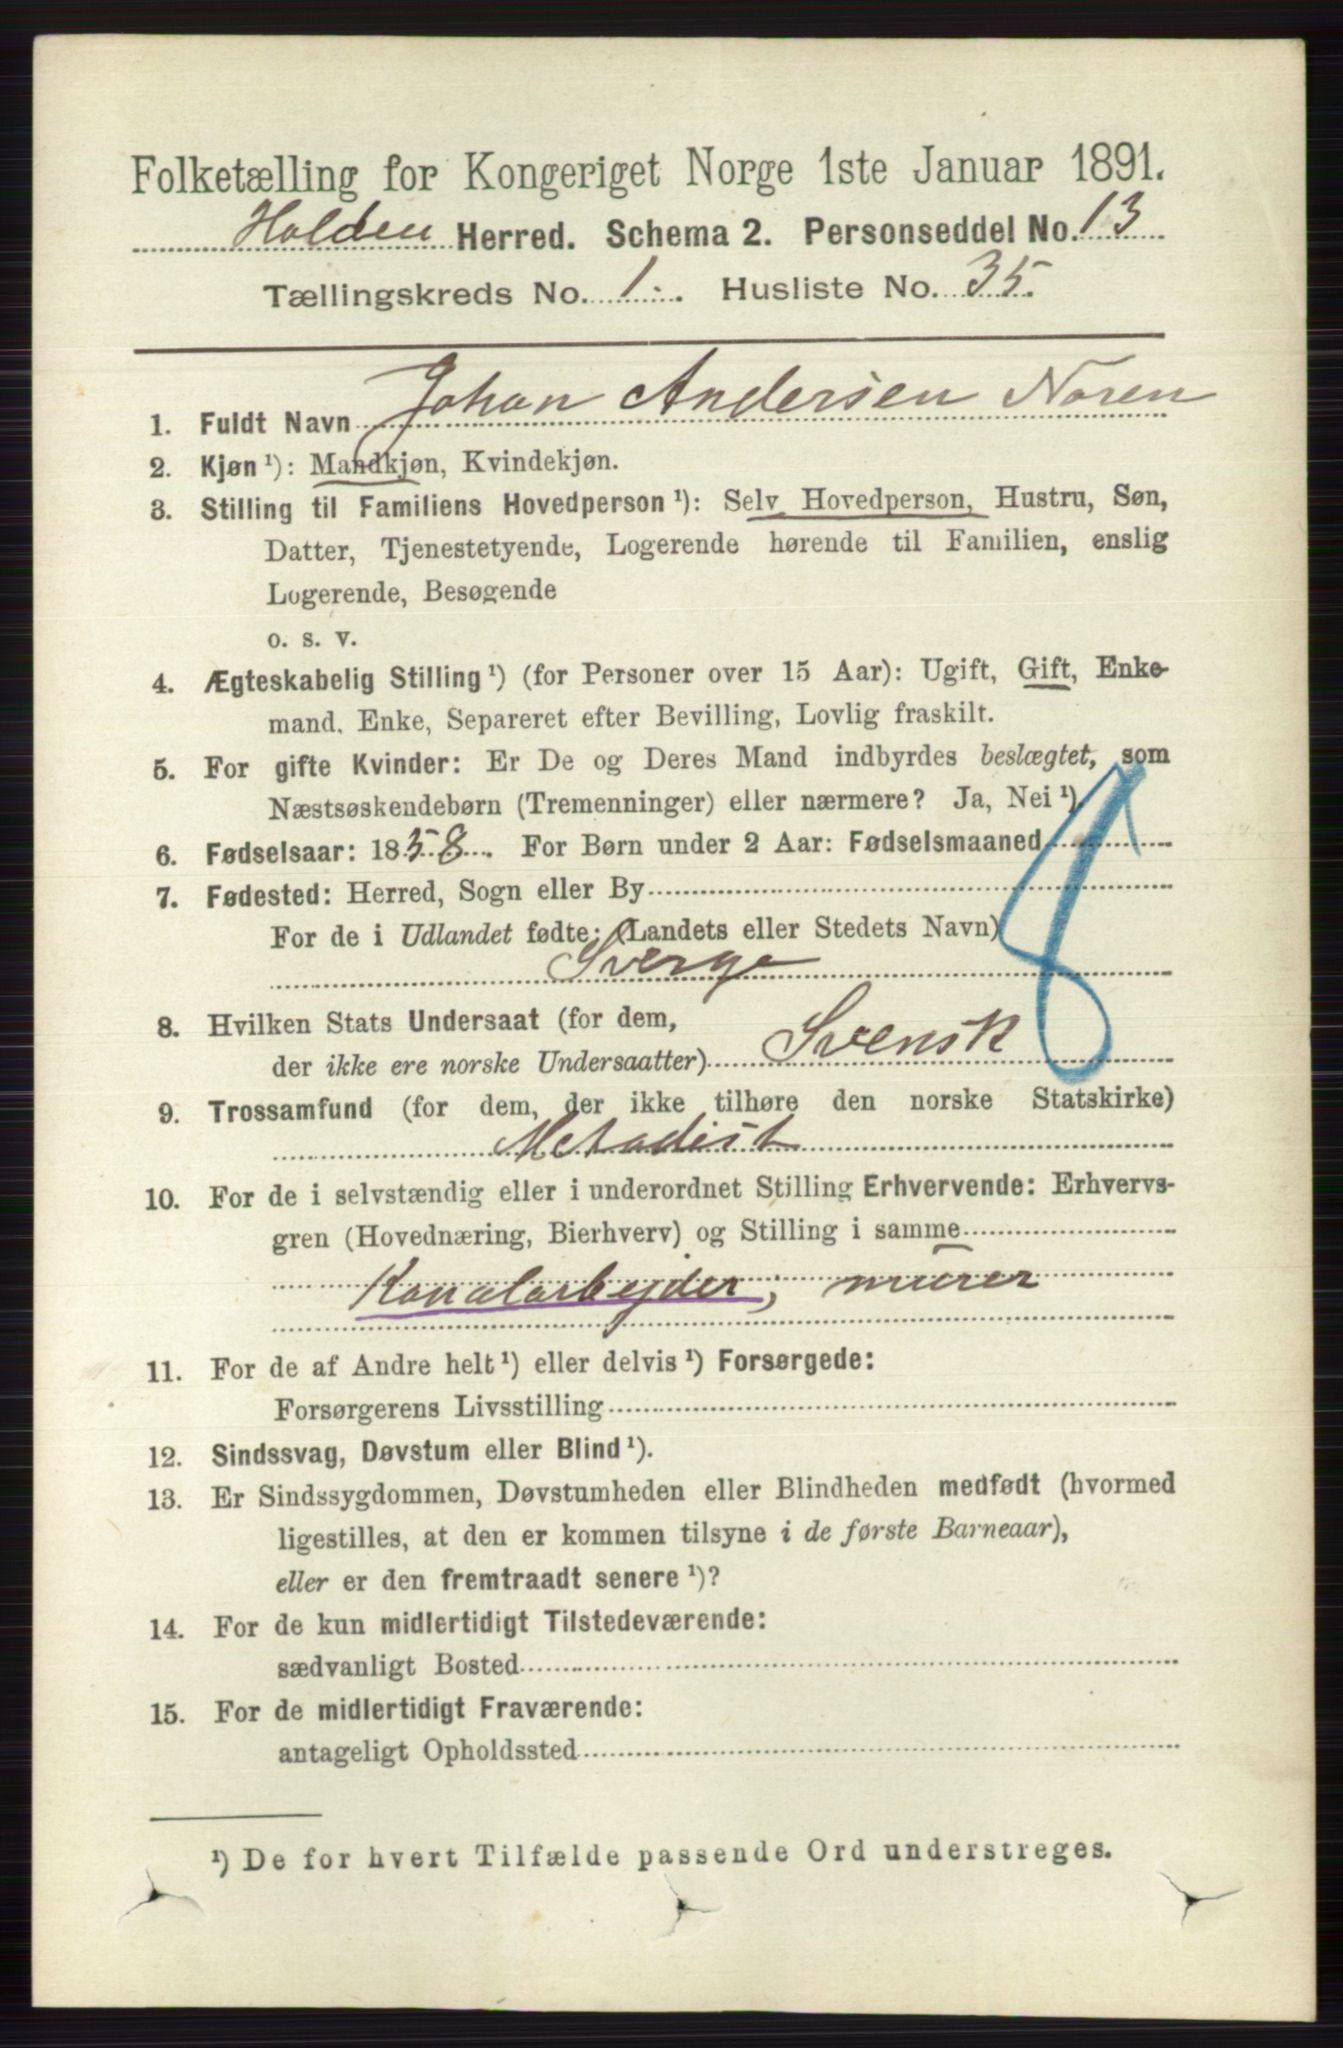 Folketælling for Kongeriget Norge 1ste Januar 1891.
Holden Herred. Schema 2. Personseddel No. 13
Tællingskreds No. 1. Husliste No. 35.
1. Fuldt Navn Johan Andersen Noren
2. Kjøn¹): Mandkjøn, Kvindekjøn.
3. Stilling til Familiens Hovedperson¹): Selv Hovedperson, Hustru, Søn,
Datter, Tjenestetyende, Logerende hørende til Familien, enslig
Logerende, Besøgende
o. s. v.
4. Ægteskabelig Stilling¹) (for Personer over 15 Aar): Ugift, Gift, Enke-
mand, Enke, Separeret efter Bevilling, Lovlig fraskilt.
5. For gifte Kvinder: Er De og Deres Mand indbyrdes beslægtet, som
Næstsøskendebørn (Tremenninger) eller nærmere? Ja, Nei¹).
6. Fødselsaar: 1858. For Børn under 2 Aar: Fødselsmaaned
7. Fødested: Herred, Sogn eller By
For de i Udlandet fødte: (Landets eller Stedets Navn)
Sverge
8. Hvilken Stats Undersaat (for dem,
der ikke ere norske Undersaatter) Svensk
9. Trossamfund (for dem, der ikke tilhøre den norske Statskirke)
Metodist
10. For de i selvstændig eller i underordnet Stilling Erhvervende: Erhvervs-
gren (Hovednæring, Bierhverv) og Stilling i samme
Kanalarbejder; murer
11. For de af Andre helt¹) eller delvis¹) Forsørgede:
Forsørgerens Livsstilling
12. Sindssvag, Døvstum eller Blind¹).
13. Er Sindssygdommen, Døvstumheden eller Blindheden medfødt (hvormed
ligestilles, at den er kommen tilsyne i de første Barneaar),
eller er den fremtraadt senere¹)?
14. For de kun midlertidigt Tilstedeværende:
sædvanligt Bosted
15. For de midlertidigt Fraværende:
antageligt Opholdssted
¹) De for hvert Tilfælde passende Ord understreges.